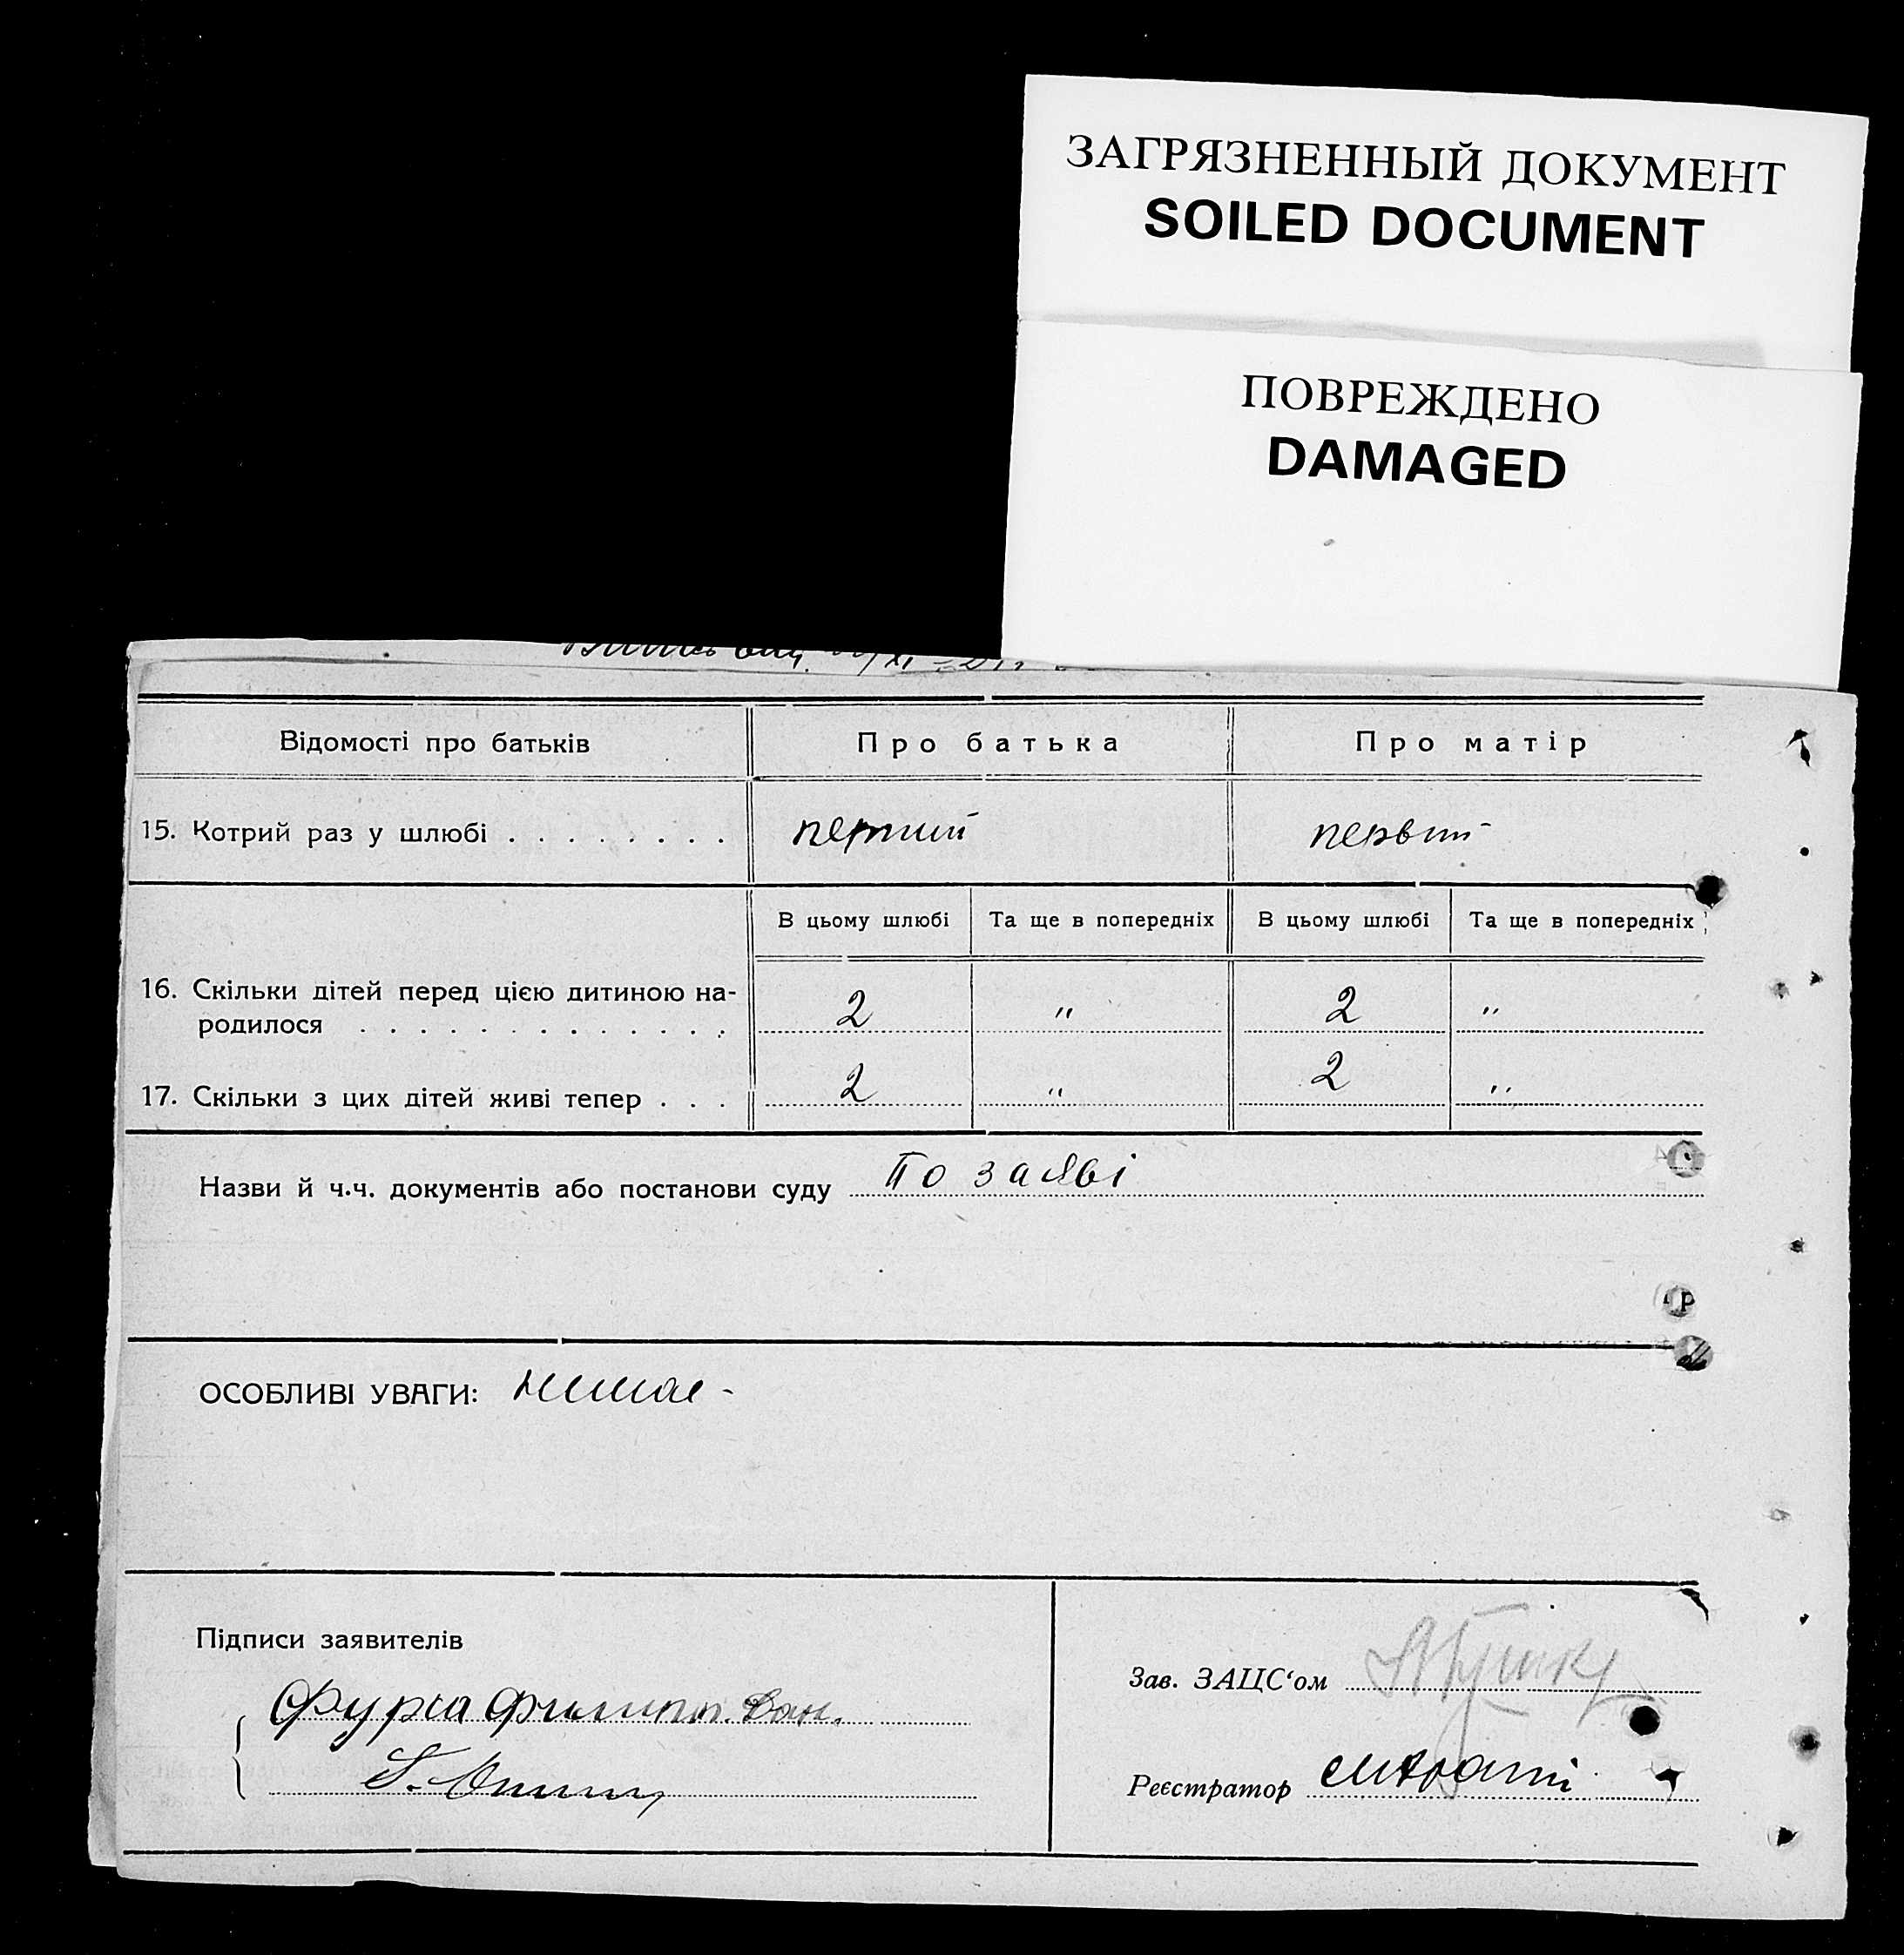 ЗАГРЯЗНЕННЫЙ ДОКУМЕНТ
SOILED DOCUMENT
ПОВРЕЖДЕНО
DAMAGED
Відомості про батьків Про батька Про матір
15. Котрий раз у шлюбі . . . . . . . . перший первий
В цьому шлюбі Та ще в попередніх В цьому шлюбі Та ще в попередніх
16. Скільки дітей перед цією дитиною на-
родилося . . . . . . . . . . . . . 2 " 2 "
17. Скільки з цих дітей живі тепер . . . 2 " 2 "
Назви й ч.ч. документів або постанови суду По заяві
ОСОБЛИВІ УВАГИ: немає -
Підписи заявителів
Зав. ЗАЦС‘ом
Фурса Филипп
Реєстратор